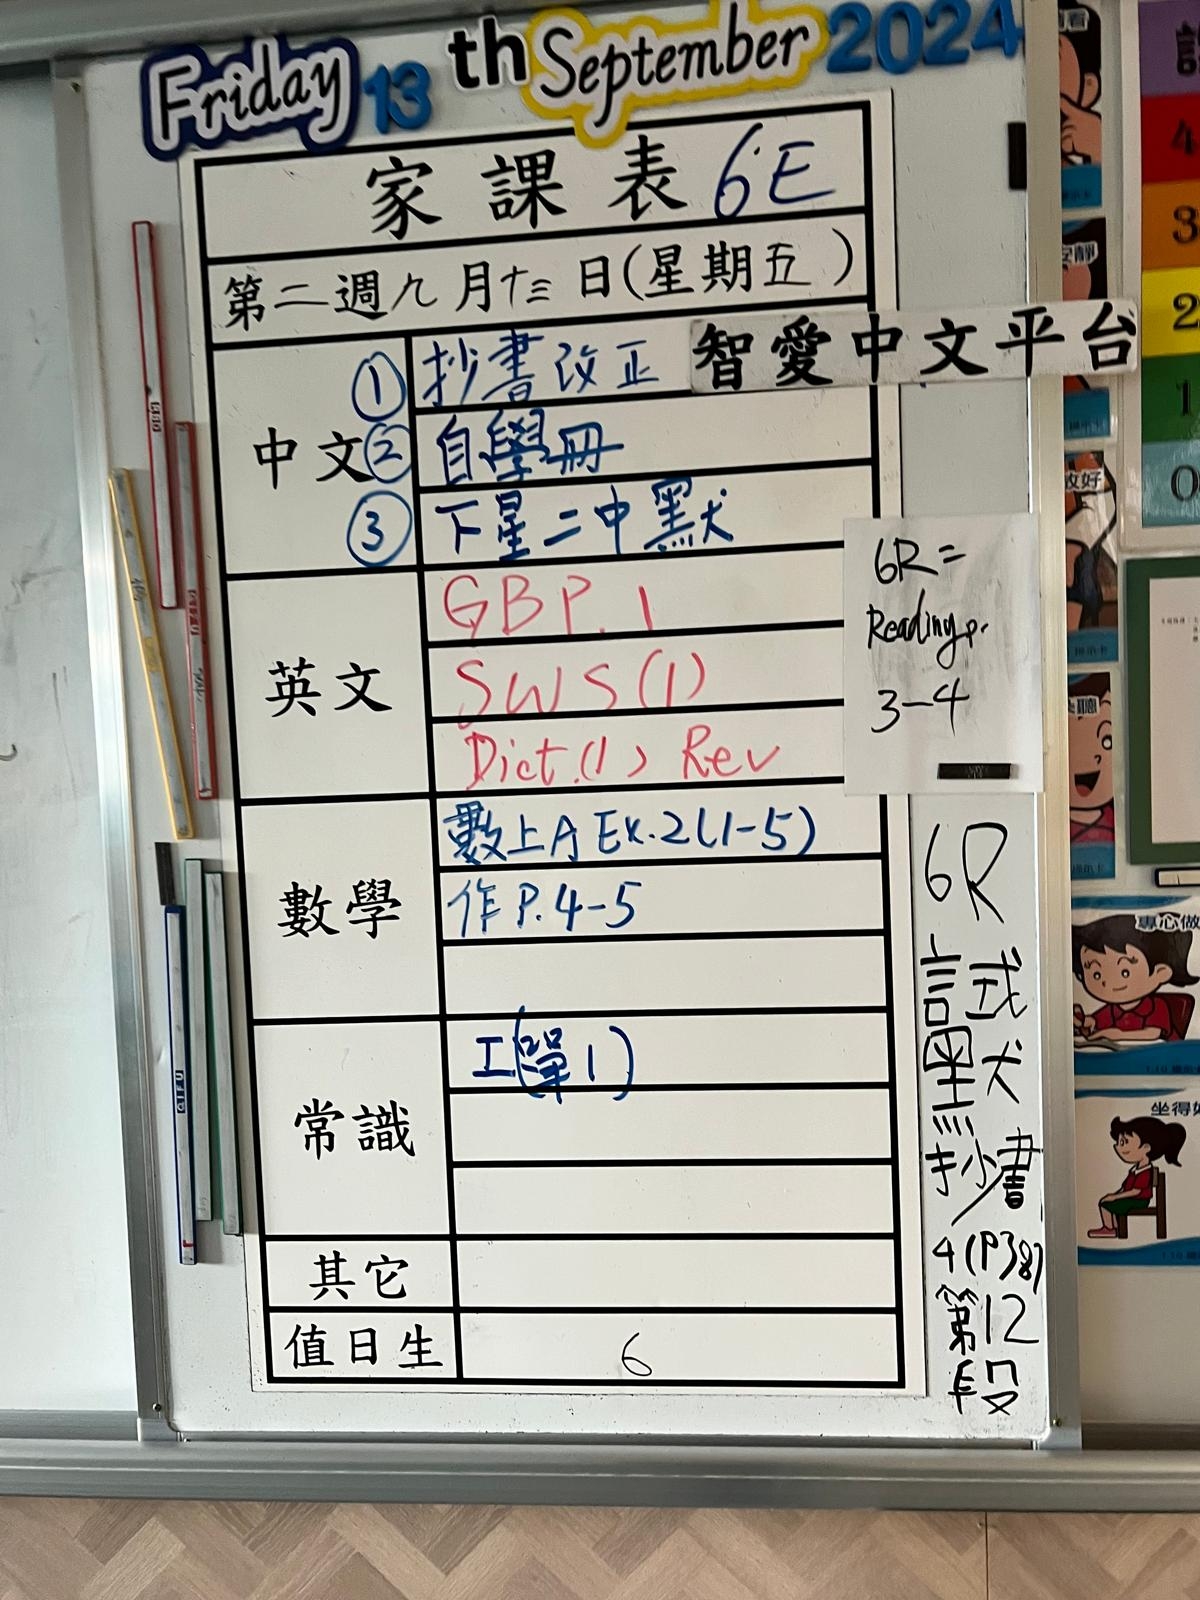 Friday 13 th September 2024
家課表 6E
第二週九月十三日(星期五)
中文
① 抄書改正
智愛中文平台
② 自學冊
③ 下星二中默
英文
GB P.1
SWS(1)
Dict.(1) Rev
6R=
Reading p.
3-4
數學
數上A Ex.2(1-5)
作P.4-5
常識
工(單1)
其它
值日生
6
6R
試
默
抄書
4(P38)
第12
段
4
3
2
1
0
專心做
坐得好